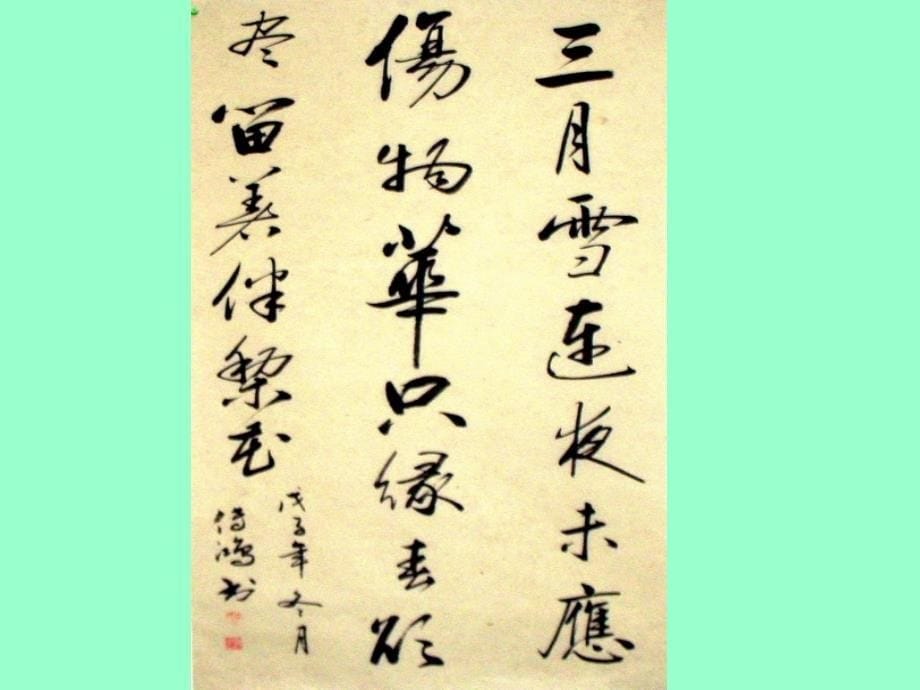 三月雪連夜未應
傷物華只緣春欲
尽留著伴梨花
戊子年冬月
傅鴻书